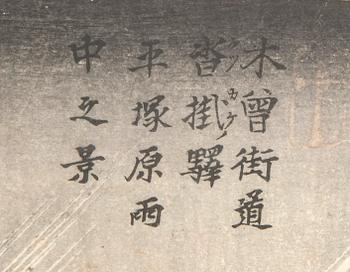 木曽街道
沓掛ノ驛
平塚原雨
中之景